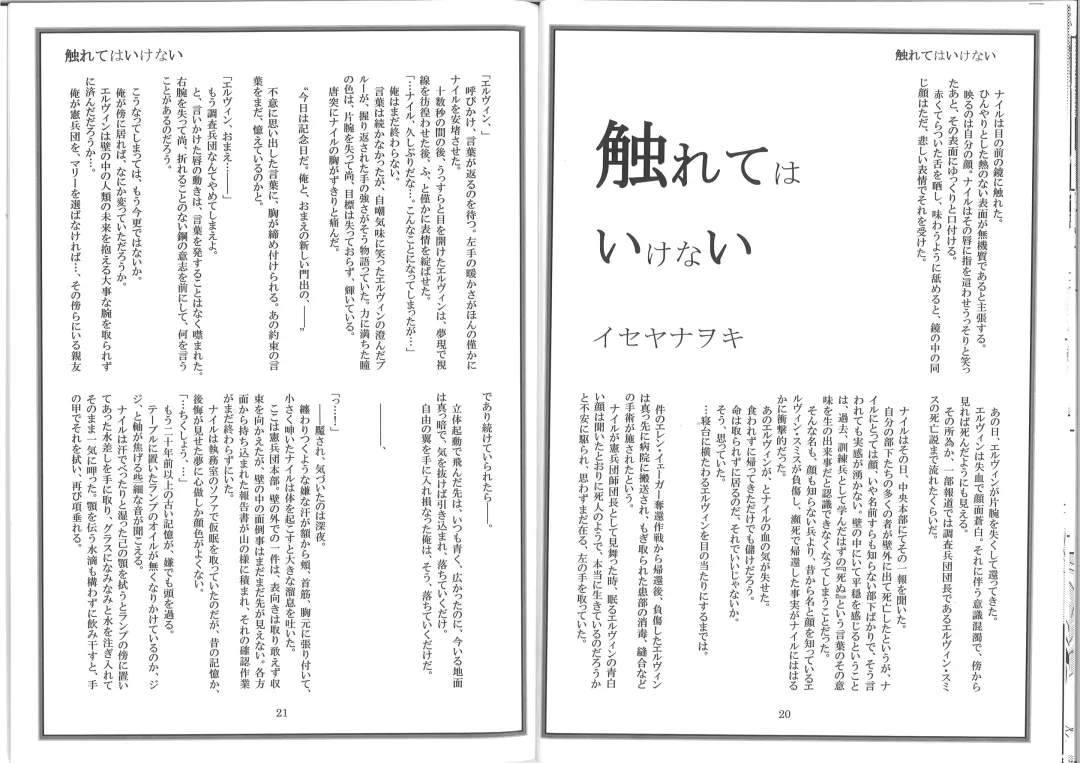 触れてはいけない
触れては
いけない
イセヤナヲキ
ナイルは目の前の鏡に触れた。
ひんやりとした熱のない表面が無機質であると主張する。
映るのは自分の顔。ナイルはその唇に指を這わせうっそりと笑っ
たあと、その表面にゆっくりと口付ける。
赤くてらついた舌を晒し、味わうように舐めると、鏡の中の同
じ顔はただ、悲しい表情でそれを受けた。
あの日、エルヴィンが片腕を失くして還ってきた。
エルヴィンは失血で顔面蒼白。それに伴う意識混濁で、傍から
見れば死んだようにも見える。
その所為か、一部報道では調査兵団団長であるエルヴィン・スミ
スの死亡説まで流れたくらいだ。
ナイルはその日、中央本部にてその一報を聞いた。
自分の部下たちの多くの者が壁外に出て死亡したというが、ナ
イルにとっては顔、いや名前すらも知らない部下ばかりで、そう言
われても実感が湧かない。壁の中にいて平穏を感じるということ
は、過去、訓練兵として学んだはずの『死ぬ』という言葉のその意
味を生の出来事だと認識できなくなってしまうことだった。
そんな名も、顔も知らない兵より、昔から名と顔を知っているエ
ルヴィン・スミスが負傷し、瀕死で帰還した事実がナイルにははる
かに衝撃的だった。
あのエルヴィンが、とナイルの血の気が失せた。
食われずに帰ってきただけでも儲けだろう。
命は取られずに居るのだ、それでいいじゃないか。
そう、思っていた。
…寝台に横たわるエルヴィンを目の当たりにするまでは。
件のエレン・イェーガー奪還作戦から帰還後、負傷したエルヴィン
は真っ先に病院に搬送され、もぎ取られた患部の消毒、縫合など
の手術が施されたという。
ナイルが憲兵団師団長として見舞った時、眠るエルヴィンの青白
い顔は聞いたとおりに死人のようで、本当に生きているのだろうか
と不安に駆られ、思わずまだ在る、左の手を取っていた。
20
触れてはいけない
「エルヴィン、」
呼びかけ、言葉が返るのを待つ。左手の暖かさがほんの僅かに
ナイルを安堵させた。
十数秒の間の後、うっすらと目を開けたエルヴィンは、夢現で視
線を彷徨わせた後、ふ、と僅かに表情を綻ばせた。
「…ナイル、久しぶりだな…。こんなことになってしまったが…」
俺はまだ終わらない。
言葉は続かなかったが、自嘲気味に笑ったエルヴィンの澄んだブ
ルーが、握り返された手の強さがそう物語っていた。力に満ちた瞳
の色は、片腕を失って尚、目標は失っておらず、輝いている。
唐突にナイルの胸がずきりと痛んだ。
〝今日は記念日だ。俺と、おまえの新しい門出の、――〟
不意に思い出した言葉に、胸が締め付けられる。あの約束の言
葉をまだ、憶えているのかと。
「エルヴィン、おまえ…――」
もう調査兵団なんてやめてしまえよ。
と、言いかけた唇の動きは、言葉を発することはなく噤まれた。
右腕を失って尚、折れることのない鋼の意志を前にして、何を言う
ことがあるのだろう。
こうなってしまっては、もう今更ではないか。
俺が傍に居れば、なにか変っていただろうか。
エルヴィンは壁の中の人類の未来を抱える大事な腕を取られず
に済んだだろうか…。
俺が憲兵団を、マリーを選ばなければ…、その傍らにいる親友
であり続けていられたら――。
立体起動で飛んだ先は、いつも青く、広かったのに、今いる地面
は真っ暗で、気を抜けば引き込まれ、落ちていくだけ。
自由の翼を手に入れ損なった俺は、そう、落ちていくだけだ。
――、
「っ…！」
――魘され、気づいたのは深夜。
纏わりつくような嫌な汗が額から頬、首筋、胸元に張り付いて、
小さく呻いたナイルは体を起こすと大きな溜息を吐いた。
ここは憲兵団本部。壁の外での一件は、表向きは取り敢えず収
束を向かえたが、壁の中の面倒事はまだまだ先が見えない。各方
面から持ち込まれた報告書が山の様に積まれ、それの確認作業
がまだ終わらずにいた。
ナイルは執務室のソファで仮眠を取っていたのだが、昔の記憶か、
後悔が見せた夢に心做しか顔色がよくない。
「…ちくしょう、…」
もう二十年前以上の古い記憶が、嫌でも頭を過る。
テーブルに置いたランプのオイルが無くなりかけているのか、ジ
ジ、と軸が焦げる些細な音が聞こえる。
ナイルは汗でべったりと湿った己の顎を拭うとランプの傍に置い
てあった水差しを手に取り、グラスになみなみと水を注ぎ入れて
そのまま一気に呷った。顎を伝う水滴も構わずに飲み干すと、手
の甲でそれを拭い、再び項垂れる。
21